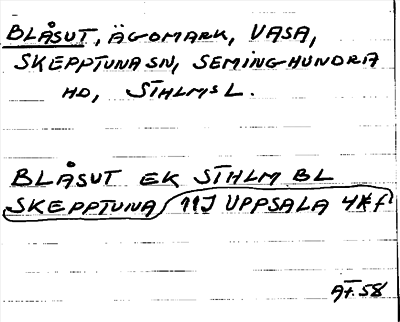 BLÅSUT, ÄGOMARK, VASA,
SKEPPTUNA SN, SEMINGHUNDRA
HD, STHLMS L.
BLÅSUT EK STHLM BL
SKEPPTUNA 11J UPPSALA 4 f
ÄT. 58